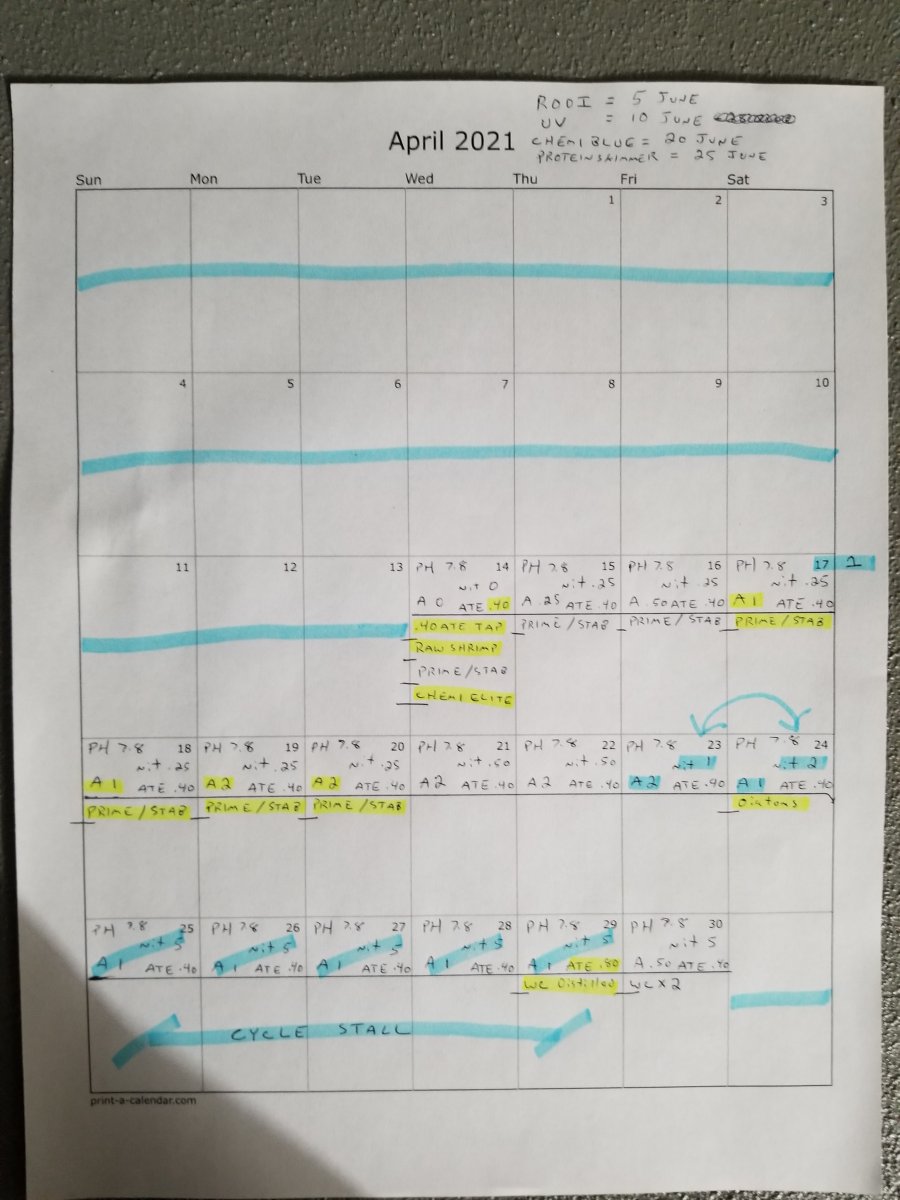 RODI = 5 JUNE
UV = 10 JUNE
April 2021 CHEMIBLUE = 20 JUNE
PROTEINSKIMMER = 25 JUNE
Sun Mon Tue Wed Thu Fri Sat
1 2 3
4 5 6 7 8 9 10
11 12 13
PH 7.8 14
Nit 0
A 0 ATE .40
.40 ATE TAP
RAW SHRIMP
PRIME/STAB
CHEMI ELITE
PH 7.8 15
Nit .25
A .25 ATE .40
PRIME/STAB
PH 7.8 16
Nit .25
A .50 ATE .40
PRIME/STAB
PH 7.8 17 1
Nit .25
A 1 ATE .40
PRIME/STAB
PH 7.8 18
Nit .25
A 1 ATE .40
PRIME/STAB
PH 7.8 19
Nit .25
A 2 ATE .40
PRIME/STAB
PH 7.8 20
Nit .25
A 2 ATE .40
PRIME/STAB
PH 7.8 21
Nit .50
A 2 ATE .40
PH 7.8 22
Nit .50
A 2 ATE .40
PH 7.8 23
Nit 1
A 2 ATE .40
PH 7.8 24
Nit 2
A 1 ATE .40
Diatoms
PH 7.8 25
Nit 5
A 1 ATE .40
PH 7.8 26
Nit 5
A 1 ATE .40
PH 7.8 27
Nit 5
A 1 ATE .40
PH 7.8 28
Nit 5
A 1 ATE .40
PH 7.8 29
Nit 5
A 1 ATE .80
WC Distilled
PH 7.8 30
Nit 5
A .50 ATE .40
WC X 2
CYCLE STALL
print-a-calendar.com